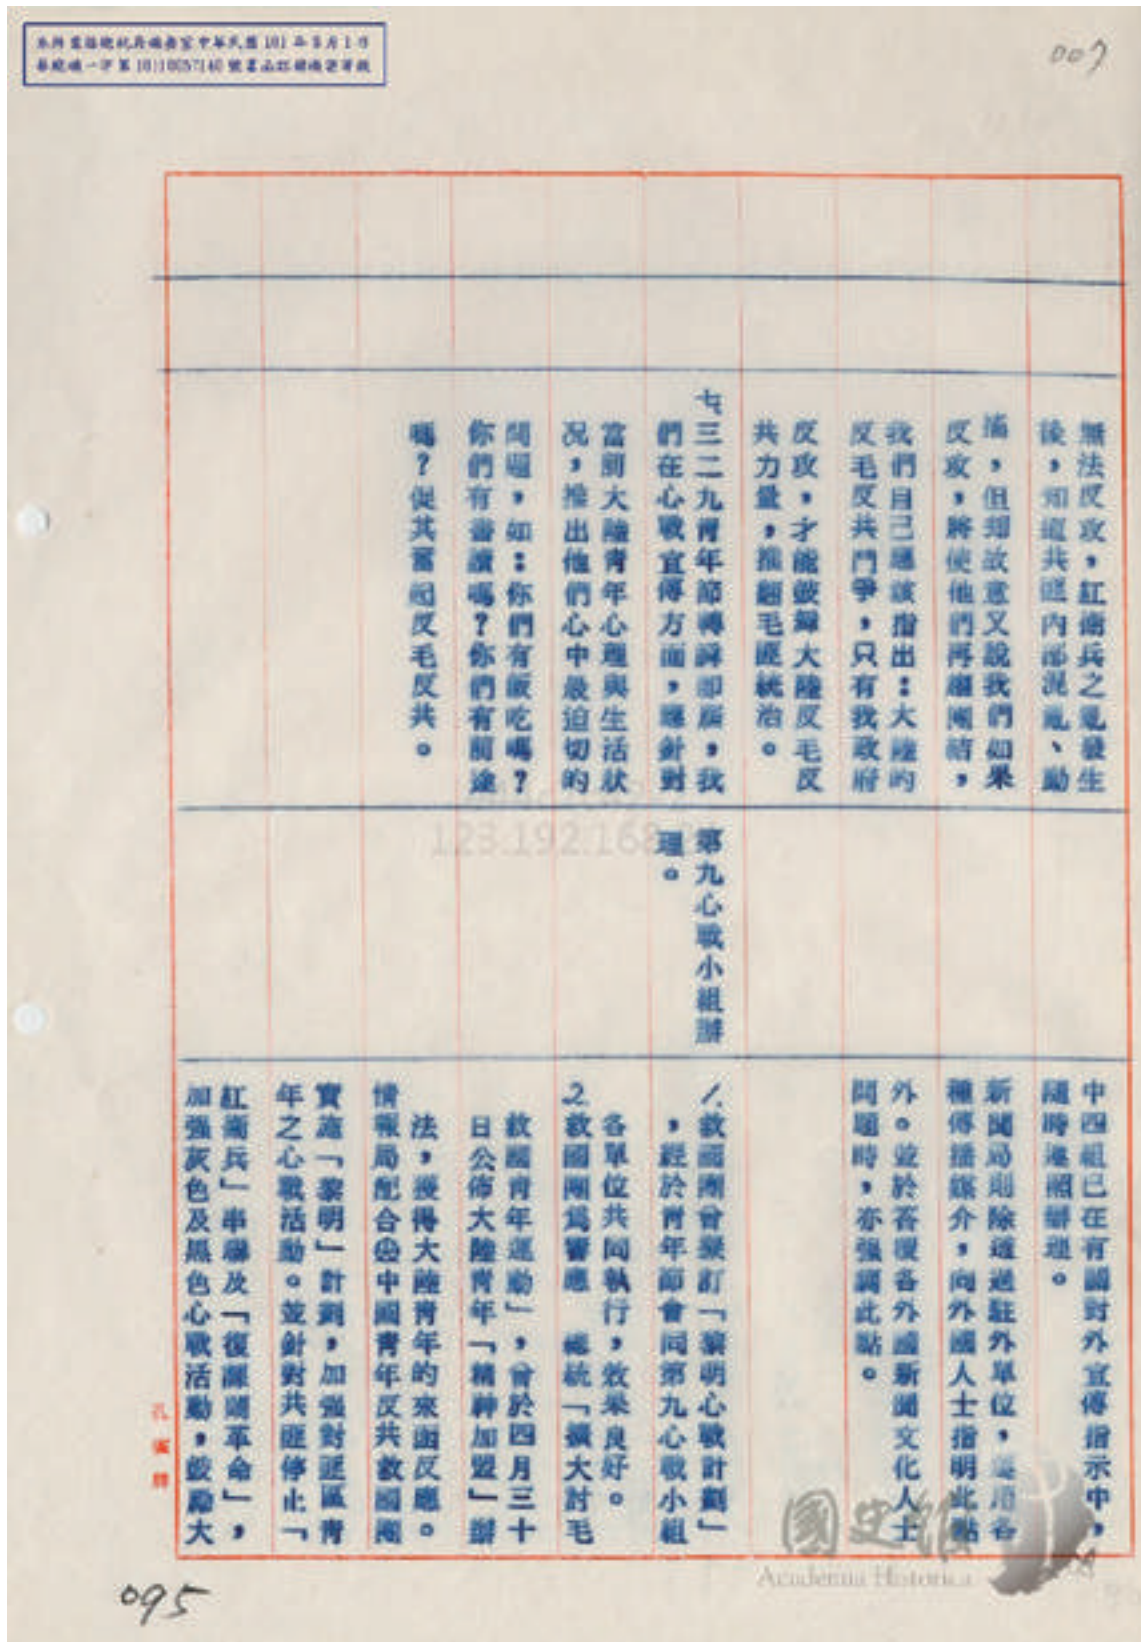 本件業經總統府機要室中華民國101年5月1日
華總機一字第10110057140號書函註銷機密等級
007
無法反攻，紅衛兵之亂發生
後，知道共匪內部混亂、動
搖，但却故意又說我們如果
反攻，將使他們再趨團結，
我們自己應該指出：大陸的
反毛反共鬥爭，只有我政府
反攻，才能鼓舞大陸反毛反
共力量，推翻毛匪統治。
七三二九青年節轉瞬即屆，我
們在心戰宣傳方面，應針對
當前大陸青年心理與生活狀
況，推出他們心中最迫切的
問題，如：你們有飯吃嗎？
你們有書讀嗎？你們有前途
嗎？促其奮起反毛反共。
第九心戰小組辦
理。
中四組已在有關對外宣傳指示中，
隨時遵照辦理。
新聞局則除透過駐外單位，運用各
種傳播媒介，向外國人士指明此點
外。並於答覆各外國新聞文化人士
問題時，亦強調此點。
1.救國團曾擬訂「黎明心戰計劃」
，經於青年節會同第九心戰小組
各單位共同執行，效果良好。
2.救國團為響應 總統「擴大討毛
救國青年運動」，曾於四月三十
日公佈大陸青年「精神加盟」辦
法，獲得大陸青年的來函反應。
情報局配合中國青年反共救國團
實施「黎明」計劃，加強對匪區青
年之心戰活動。並針對共匪停止「
紅衛兵」串聯及「復課鬧革命」，
加強灰色及黑色心戰活動，鼓勵大
孔雀牌
123.192.168
國史館
Academia Historica
095